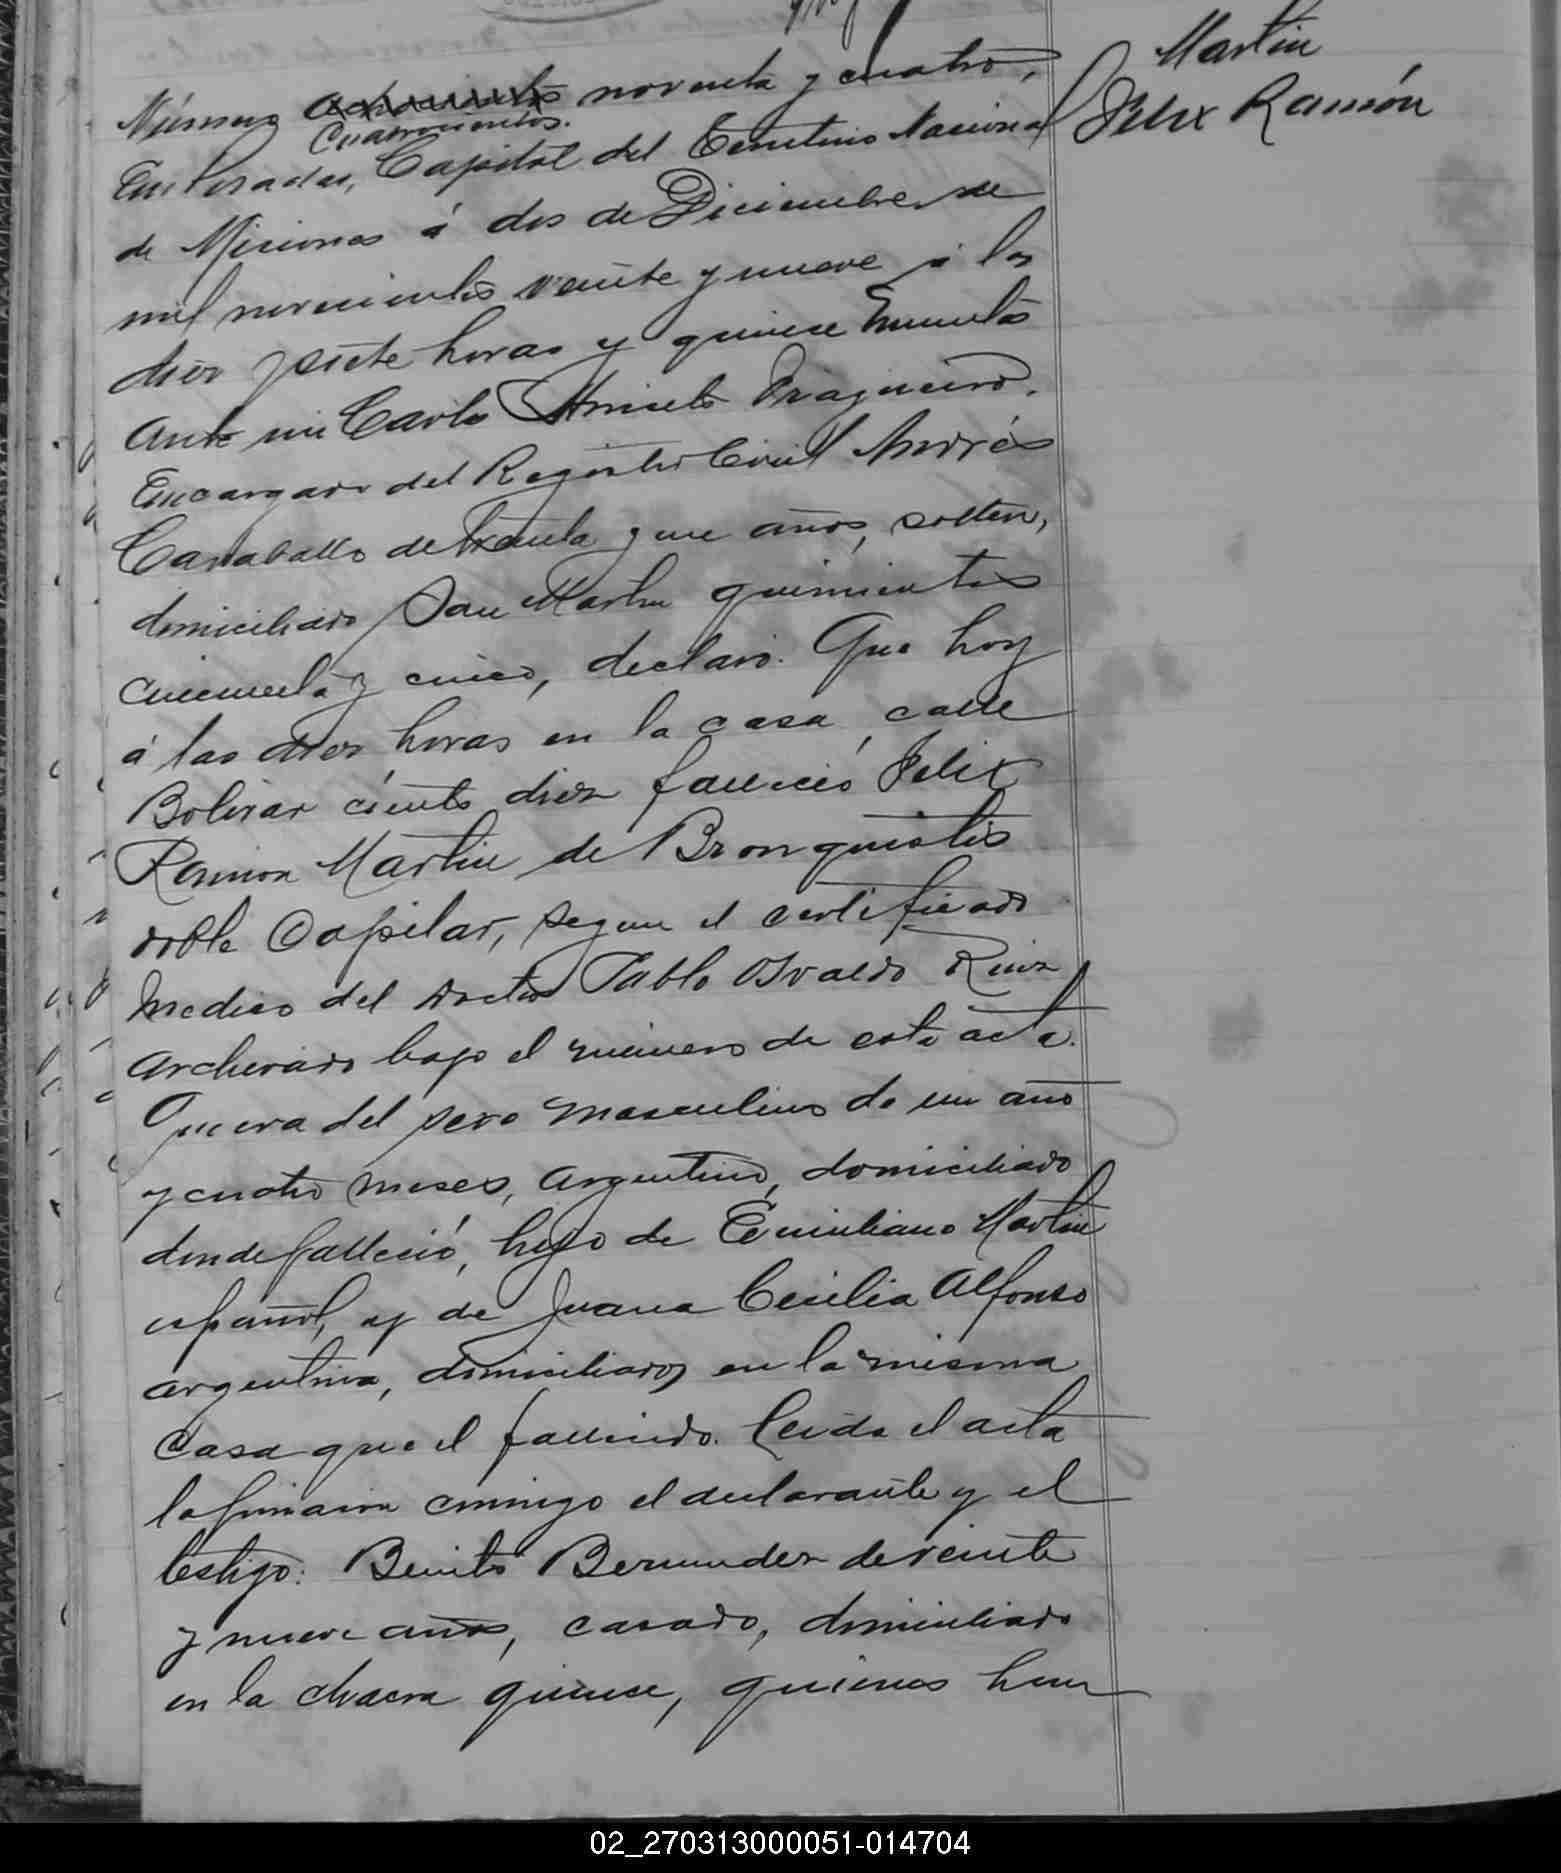 Martin
Felix Ramón
Número noventa y cuatro,
Cuatrocientos.
En Posadas, Capital del Territorio Nacional
de Misiones á dos de Diciembre de
mil novecientos veinte y nueve á las
diez y siete horas y quince minutos
ante mi Carlos Aniceto Fragueiro.
Encargado del Registro Civil Andrés
Caraballo de treinta y un años, soltero,
domiciliado San Martin quinientos
cincuenta y cinco, declaró: Que hoy
á las diez horas en la casa calle
Bolivar ciento diez falleció Felix
Ramon Martin de Bronquitis
doble Capilar, segun el certificado
medico del doctor Pablo Osvaldo Ruiz
archivado bajo el número de esta acta.
Que era del sexo masculino de un año
y cuatro meses, argentino, domiciliado
donde falleció, hijo de Emiliano Martin
español, y de Juana Cecilia Alfonso
argentina, domiciliados en la misma
casa que el fallecido. Leida el acta
la firmaron conmigo el declarante y el
testigo: Benito Bermudez de veinte
y nueve años, casado, domiciliado
en la chacra quince, quienes han
02_270313000051-014704